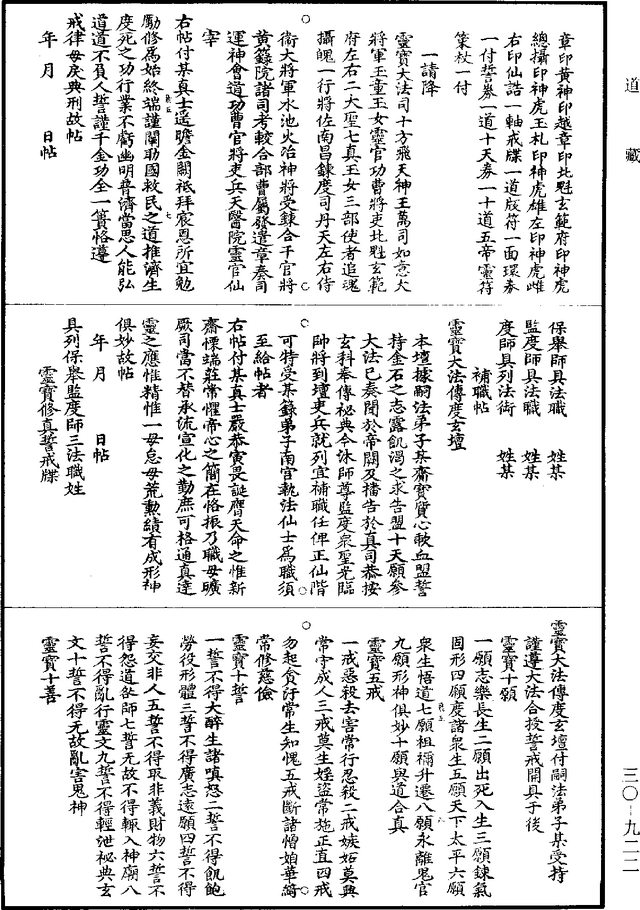 道藏
章印黃神印越章印北魁玄範府印神虎
總攝印神虎玉札印神虎雄左印神虎雌
右印仙誥一軸戒牒一道版符一面環券
一付誓券一道十天券一十道五帝靈符
策杖一付
一請降
靈寶大法司十方飛天神王萬司如意大
將軍玉童玉女靈官功曹將吏北魁玄範
府左右二大聖七真玉女三部使者追魂
攝魄一行將佐南昌鍊度司丹天左右侍
衛大將軍水池火沼神將受鍊合千官將
黃籙院諸司考較合部曹屬發遣章奏司
運神會道功曹官將吏兵天醫院靈官仙
宰
右帖付某真士遥瞻金闕祇拜宸恩所宜勉
勵修為始終端謹闡助國救民之道推濟生
度死之功行業不虧幽明普濟當思人能弘
道道不負人誓謹千金功全一簣恪遵
戒律毋戾典刑故帖
年 月 日帖
保舉師具法職 姓某
監度師具法職 姓某
度師具列法術 姓某
補職帖
靈寶大法傳度玄壇
本壇據嗣法弟子某齋寶質心歃血盟誓
持金石之志露飢渴之求告盟十天願參
大法已奏聞於帝闕及擂告於真司恭按
玄科奉傳秘典今沐師尊監度衆聖光臨
帥將到壇吏兵就列宜補職任俾正仙階
可特受某籙弟子南宫執法仙士為職須
至給帖者
右帖付某真士嚴恭寅畏誕膺天命之惟新
齋慄端莊常懼帝心之簡在恪振乃職毋曠
厥司當不替承流宣化之勤庶可格通真達
靈之應惟精惟一毋怠毋荒勲績有成形神
俱妙故帖
年 月 日帖
具列保舉監度師三法職姓
靈寶修真誓戒牒
靈寶大法傳度玄壇付嗣法弟子某受持
謹遵大法合授誓戒開具于後
靈寶十願
一願志樂長生二願出死入生三願鍊氣
固形四願度諸衆生五願天下太平六願
衆生悟道七願祖禰升遷八願永離鬼官
九願形神俱妙十願與道合真
靈寶五戒
一戒惡殺去害常行忍殺二戒嫉妬莫興
常守成人三戒莫生婬盜常施正直四戒
勿起貪汙常生知愧五戒斷諸憎妬華綺
常修慈儉
靈寶十誓
一誓不得大醉生諸嗔怒二誓不得飢飽
勞役形體三誓不得廣志遠願四誓不得
妄交非人五誓不得取非義財物六誓不
得怨道欲師七誓无故不得輒入神廟八
誓不得亂行靈文九誓不得輕泄祕典玄
文十誓不得无故亂害鬼神
靈寶十善
三〇-九二二